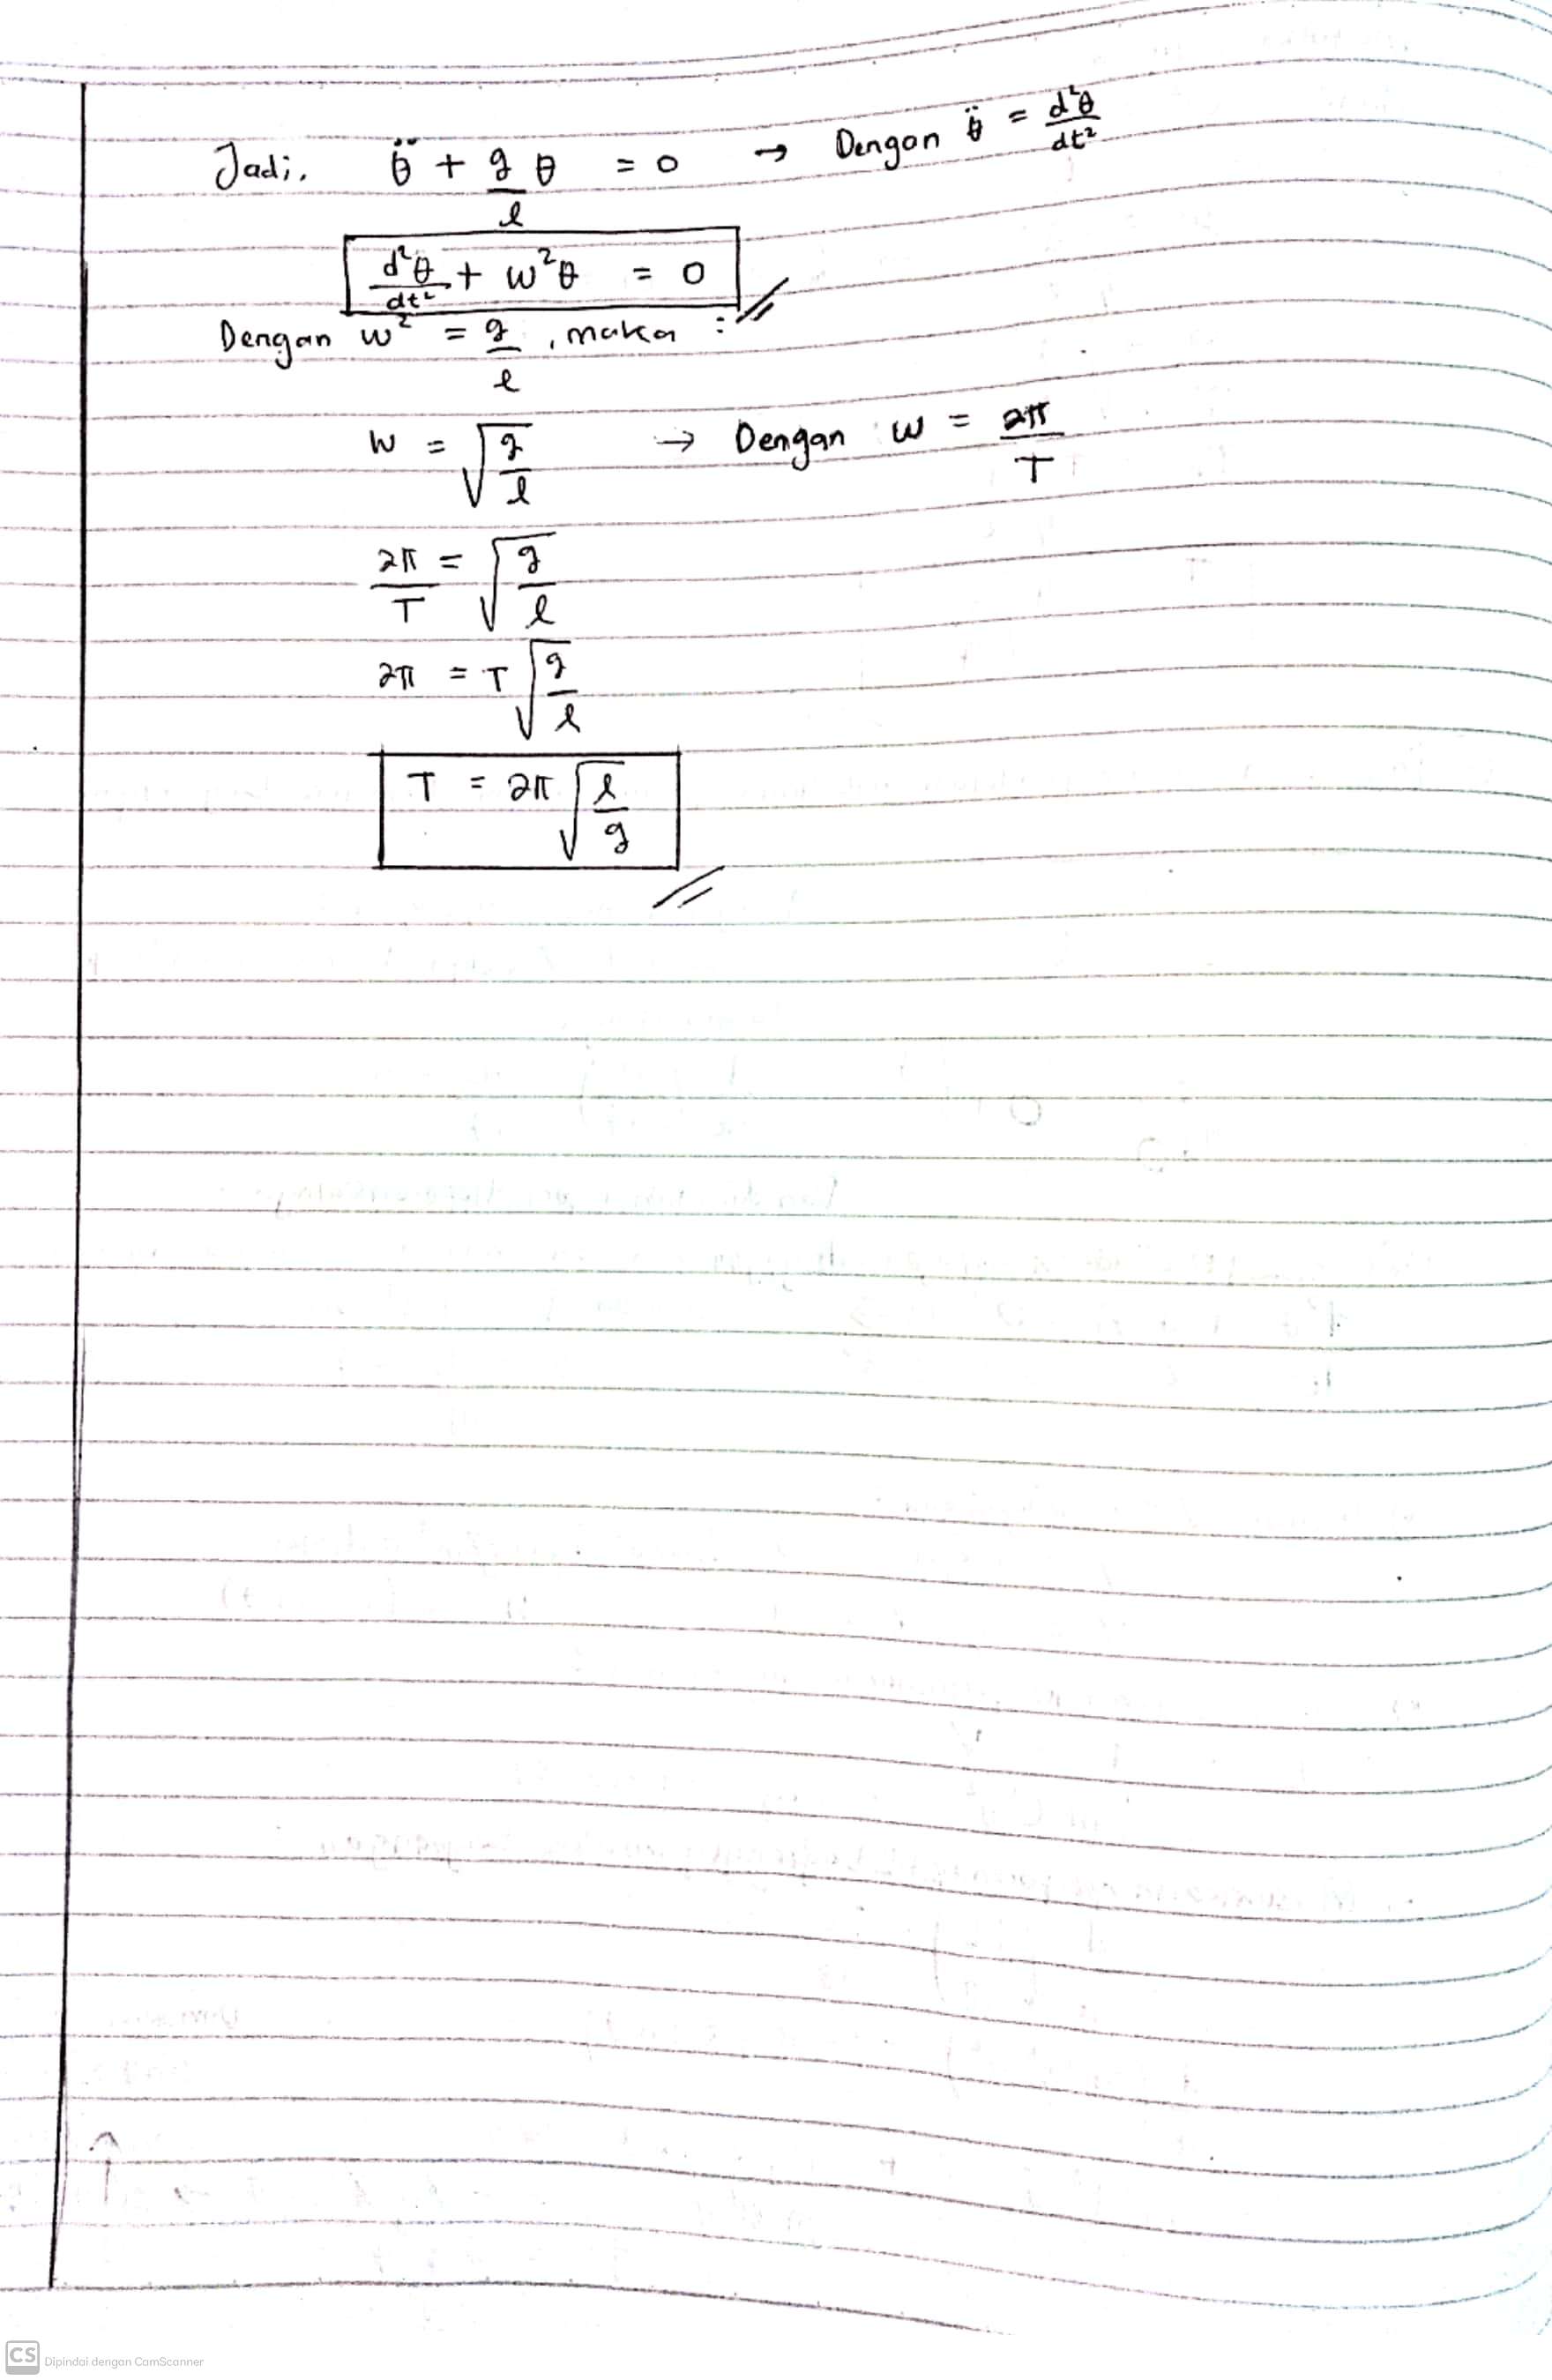 Jadi, θ̈ + g/l θ = 0 → Dengan θ̈ = d²θ/dt²
d²θ/dt² + ω²θ = 0
Dengan ω² = g/l, maka :
ω = √(g/l) → Dengan ω = 2π/T
2π/T = √(g/l)
2π = T √(g/l)
T = 2π √(l/g)
CS Dipindai dengan CamScanner